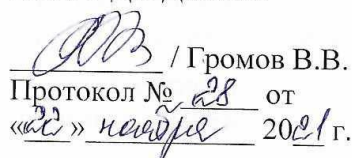 / Громов В.В.
Протокол № 28 от
«22» ноября 2021 г.